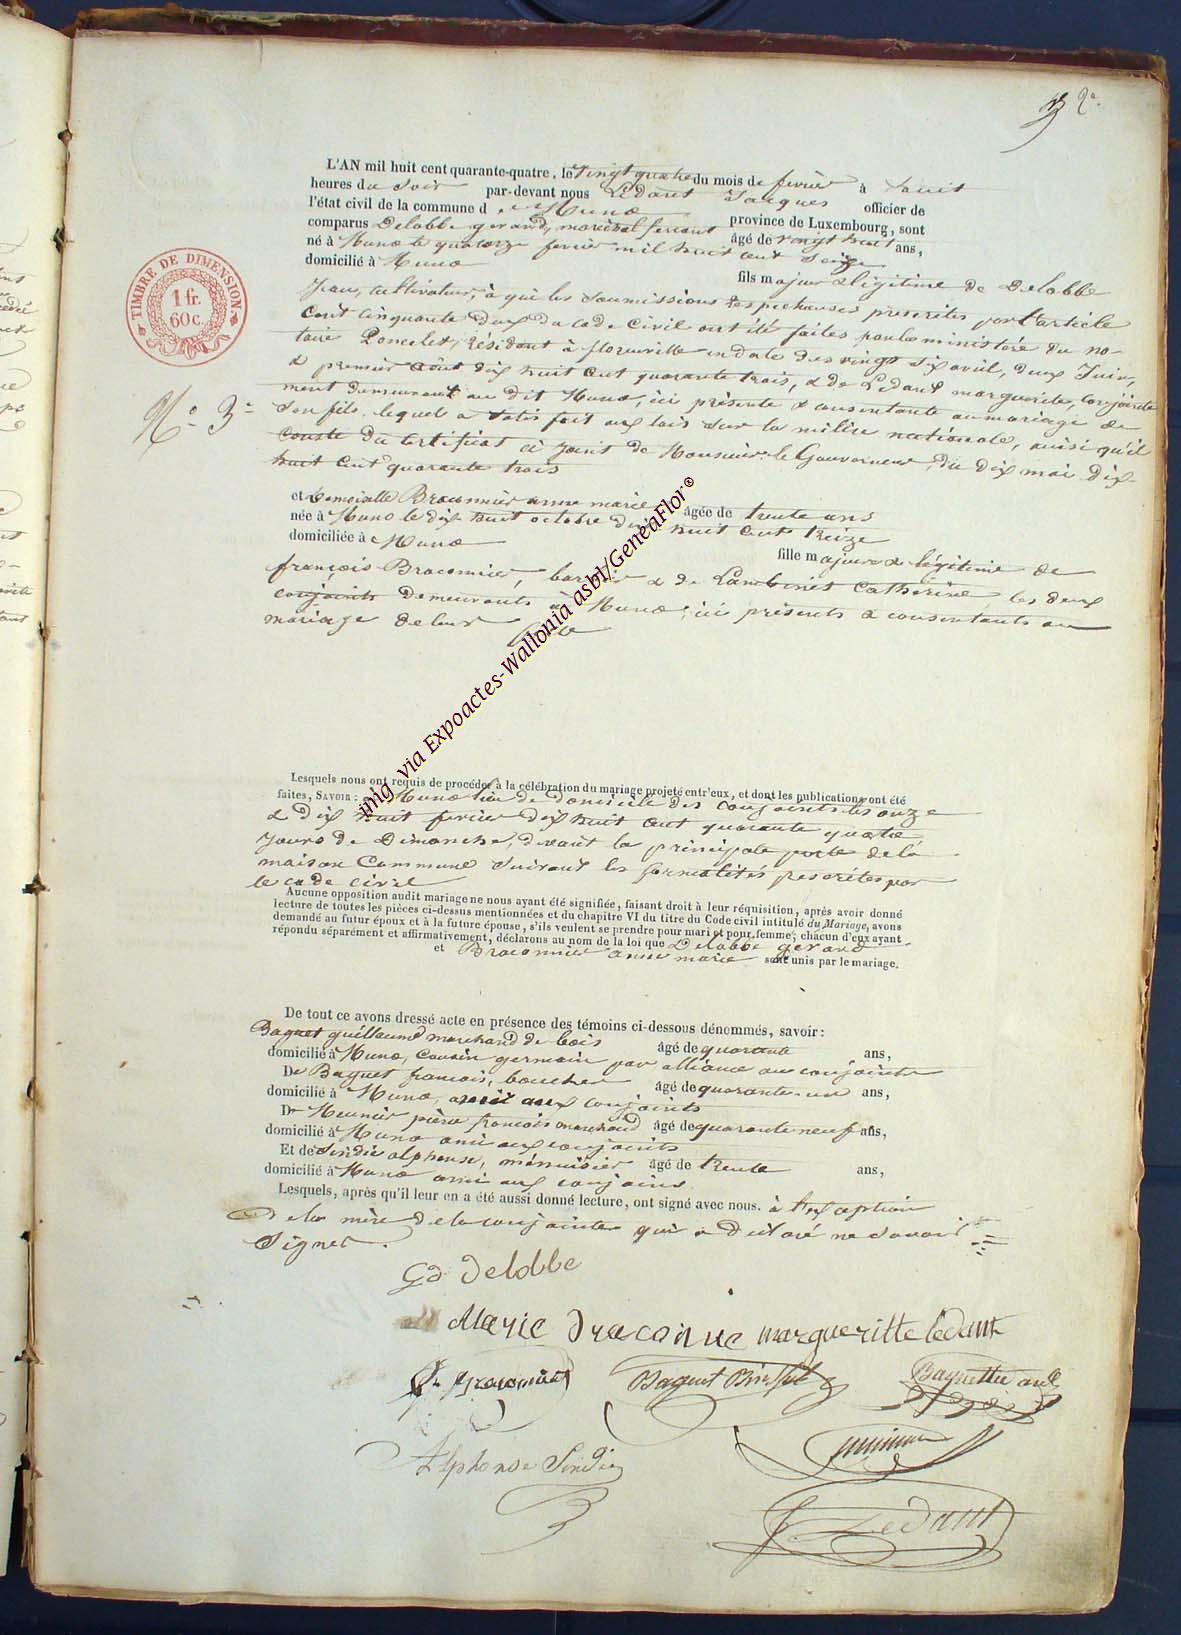 2e
L'AN mil huit cent quarante-quatre, le vingt quatre du mois de fevrier à huit
heures du soir par-devant nous Ledant Jacques officier de
l'état civil de la commune d e Muno province de Luxembourg, sont
comparus Delobbe gerard, maréchal ferrant âgé de vingt huit ans,
né à Muno le quatorze fevrier mil huit cent seize
domicilié à Muno fils majeur & légitime de Delobbe
Jean, cultivateur, à qui les soumissions respectueuses prescrites par l'article
cent cinquante deux du code Civil ont été faites par le ministère du no-
taire Poncelet, résidant à florenville en date des vingt six avril, deux Juin,
& premier août dix huit cent quarante trois, & de Ledant marguerite, conjointe
ment demeurant au dit Muno, ici présente & consentante au mariage de
son fils, lequel a satisfait aux lois sur la milice nationale, ainsi qu'il
conste du certificat ci joint de Monsieur le Gouverneur, du dix mai dix-
huit cent quarante trois
N° 3
TIMBRE DE DIMENSION
1 fr.
60 c.
et demoiselle Braconnier anne marie âgée de trente ans
née à Muno le dix huit octobre dix huit cent treize
domiciliée à Muno fille majeure & légitime de
françois Braconnier, & de Lambinet Catherine, les deux
conjoints demeurants à Muno, ici présents & consentants au
mariage de leur fille
Lesquels nous ont requis de procéder à la célébration du mariage projeté entr'eux, et dont les publications ont été
faites, SAVOIR : à Muno lieu de domicile des conjoints les onze
& dix huit fevrier dix huit cent quarante quatre
jours de Dimanche, devant la principale porte de la
maison Commune suivant les formalités prescrites par
le code civil
Aucune opposition audit mariage ne nous ayant été signifiée, faisant droit à leur réquisition, après avoir donné
lecture de toutes les pièces ci-dessus mentionnées et du chapitre VI du titre du Code civil intitulé du Mariage, avons
demandé au futur époux et à la future épouse, s'ils veulent se prendre pour mari et pour femme; chacun d'eux ayant
répondu séparément et affirmativement, déclarons au nom de la loi que Delobbe gerard
et Braconnier anne marie sont unis par le mariage.
De tout ce avons dressé acte en présence des témoins ci-dessous dénommés, savoir:
Baguet guillaume marchand de bois âgé de quarante ans,
domicilié à Muno, cousin germain par alliance au conjoint
De Baguet francois, boucher âgé de quarante-un ans,
domicilié à Muno, ami aux conjoints
De Meunier pierre francois marchand âgé de quarante neuf ans,
domicilié à Muno ami aux conjoints
Et de Sindic alphonse, menuisier âgé de trente ans,
domicilié à Muno ami aux conjoins
Lesquels, après qu'il leur en a été aussi donné lecture, ont signé avec nous. à l'exception
de la mère de la conjointe qui a déclaré ne savoir
signer.
Gd Delobbe
Marie Braconnie margueritte ledant
fr Braconnier Baguet
Alphonse Sindic
J. Ledant
img via Expoactes-Wallonia asbl/GeneaFlor®